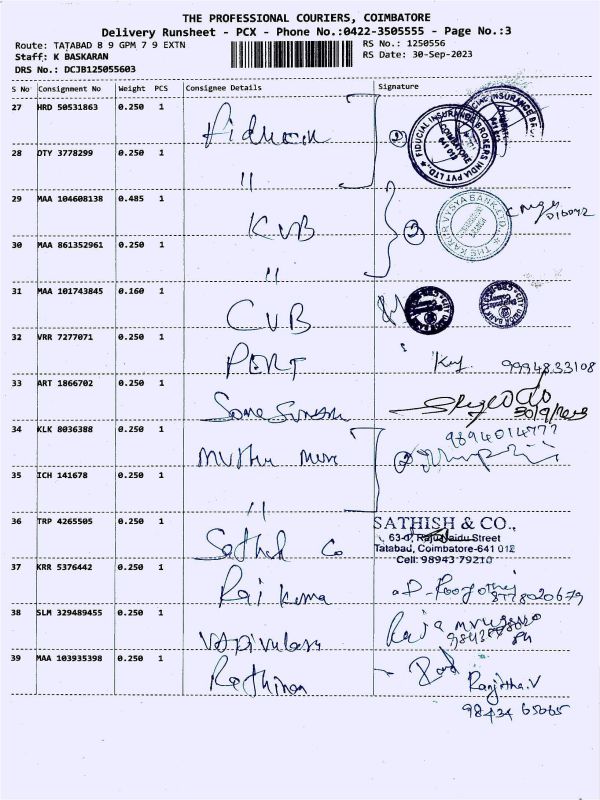 THE PROFESSIONAL COURIERS, COIMBATORE
Delivery Runsheet - PCX - Phone No.:0422-3505555 - Page No.:3
Route: TATABAD B 9 GPM 7 9 EXTN
RS No.: 1250556
Staff: K BASKARAN
RS Date: 30-Sep-2023
DRS No.: DCJB125055603
S No Consignment No Weight PCS Consignee Details Signature
27 HRD 50531863 0.250 1
FIDUCIAL INSURANCE BROKERS INDIA PVT LTD., COIMBATORE 641 012
28 DTY 3778299 0.250 1 "
29 MAA 104608138 0.485 1 KVB 2 THE KARUR VYSYA BANK LTD. 016092
30 MAA 861352961 0.250 1 "
31 MAA 101743845 0.160 1 CUB
32 VRR 7277071 0.250 1 PORT 9994833108
33 ART 1866702 0.250 1 Soma Suresh 30/9/2023
34 KLK 8036388 0.250 1 Muthu 2 9894014777
35 ICH 141678 0.250 1 "
36 TRP 4265505 0.250 1 Sathish Co
SATHISH & CO.,
63-D, Raju Naidu Street
Tatabad, Coimbatore-641 012
Cell: 98943 79210
37 KRR 5376442 0.250 1 Raj Kuma 8778020679
38 SLM 329489455 0.250 1 Raja
39 MAA 103935398 0.250 1 Rathinam
Ranjitha.V
98434 65065